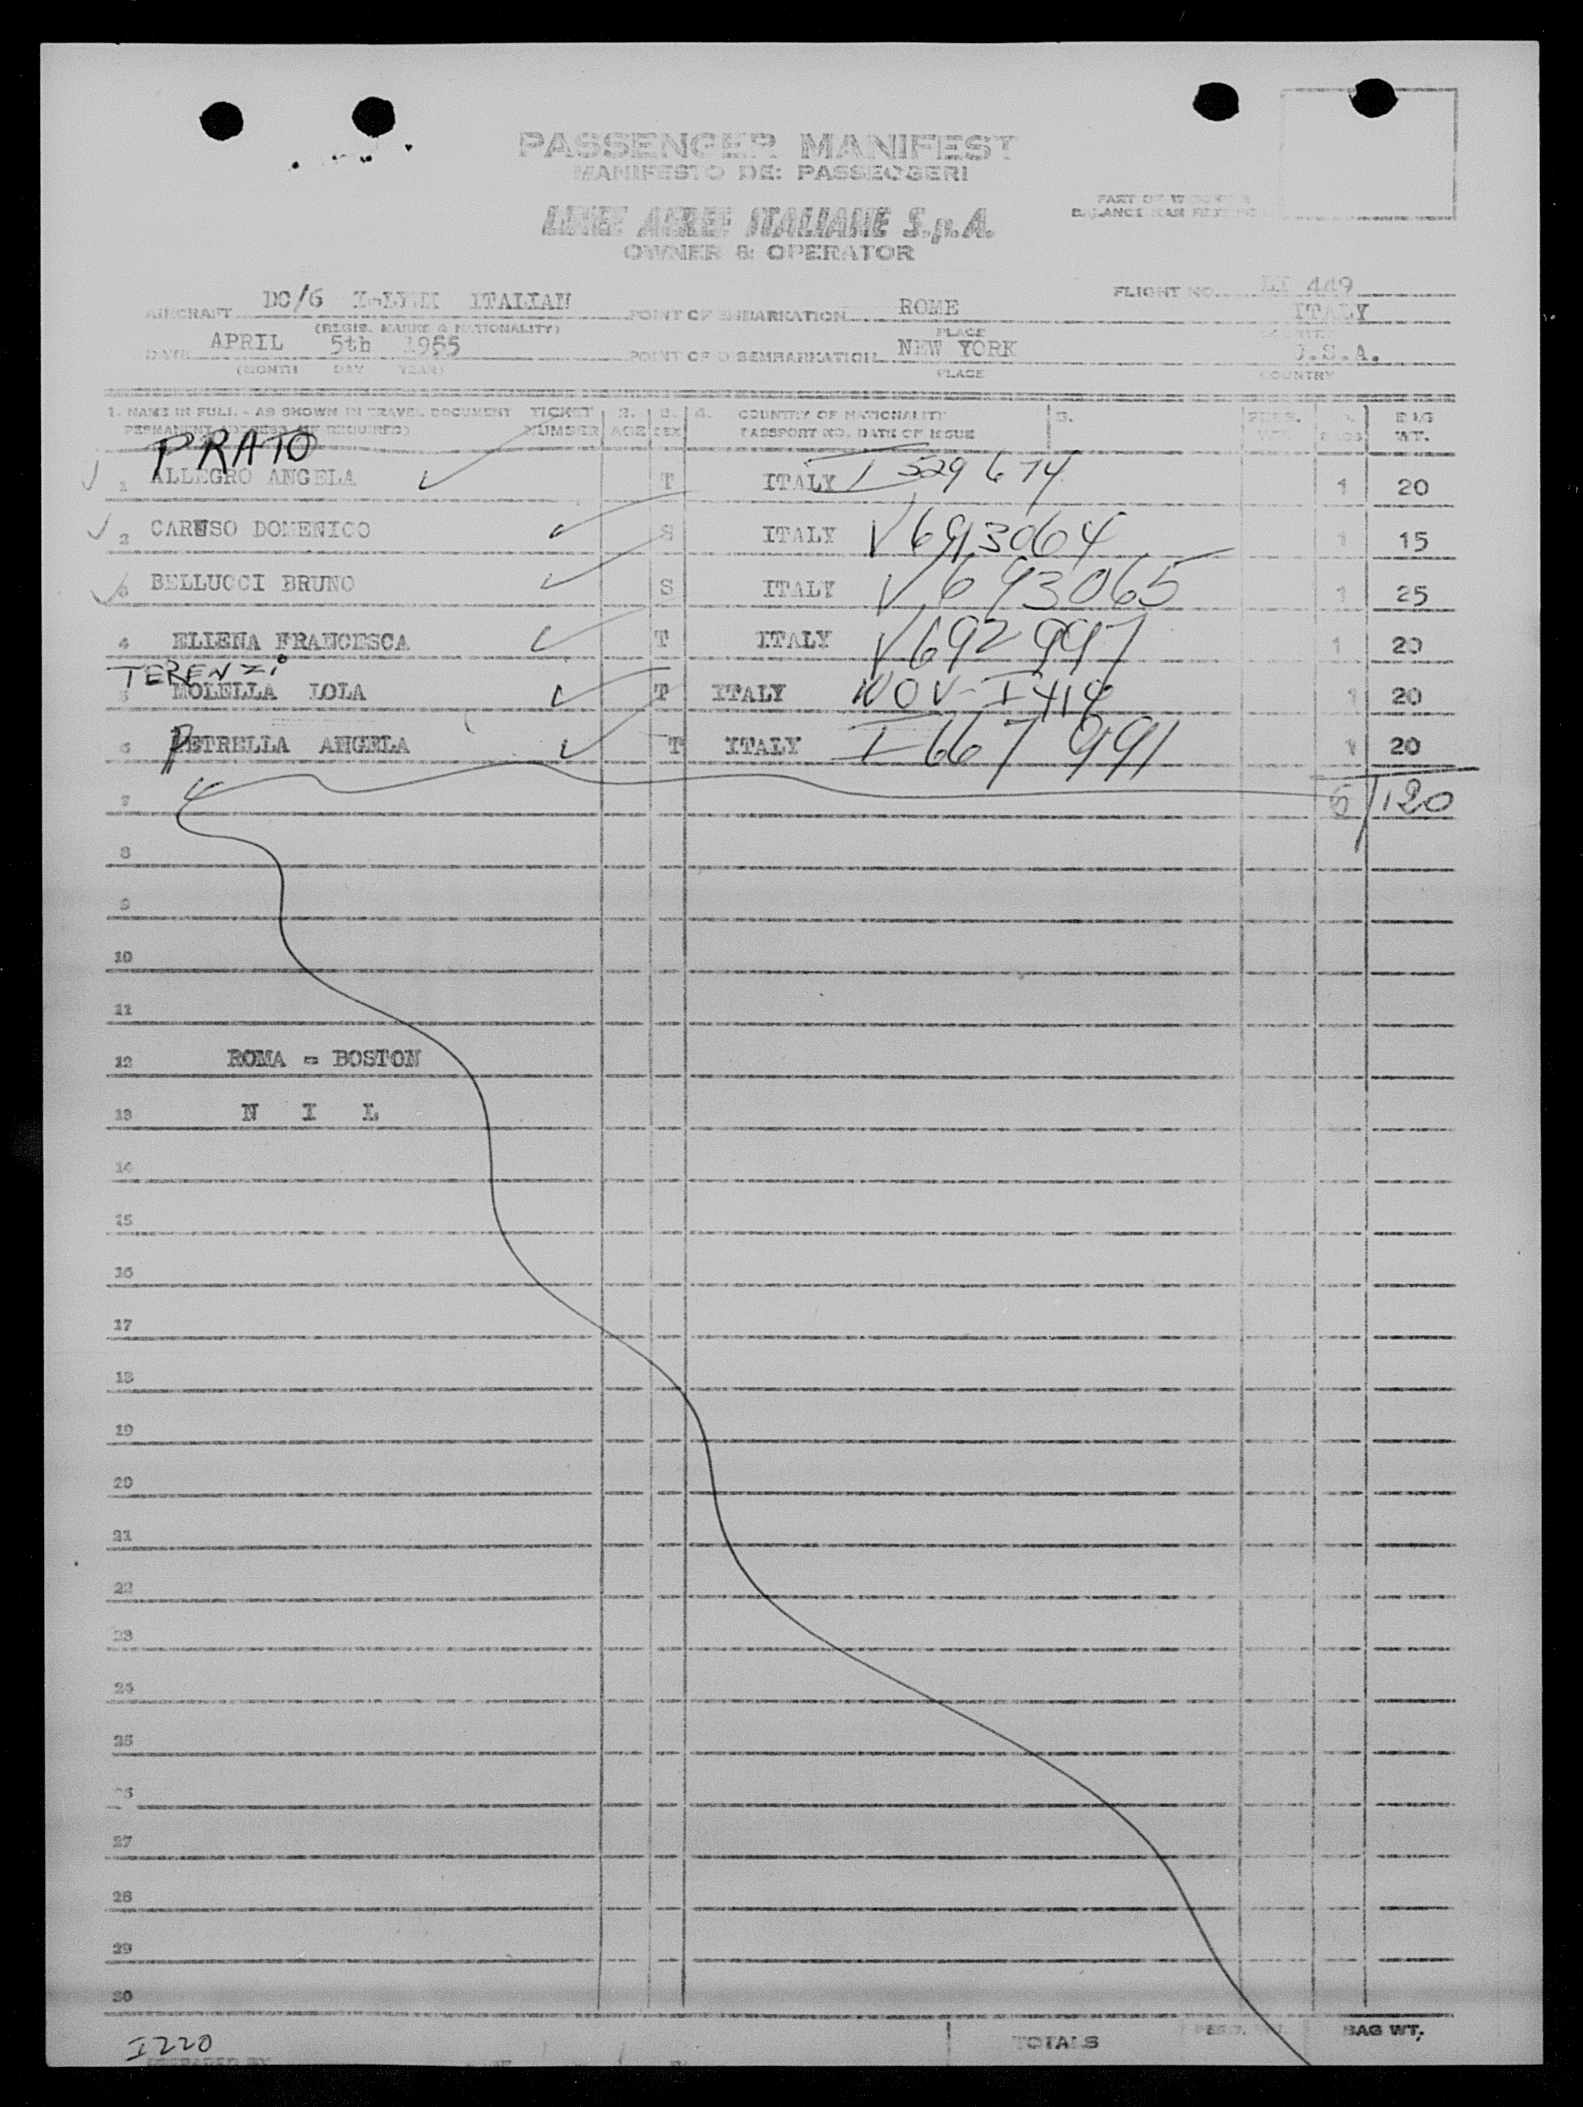 PASSENGER MANIFEST
MANIFESTO DEI PASSEGGERI
LINEE AEREE ITALIANE S.p.A.
OWNER & OPERATOR
PART OF
BALANCE
FLIGHT NO. LI 449
AIRCRAFT DC/6 ITALIAN POINT OF EMBARKATION ROME ITALY
(REGIS. MARKS & NATIONALITY) PLACE
DATE APRIL 5th 1955 POINT OF DISEMBARKATION NEW YORK U.S.A.
(MONTH DAY YEAR) PLACE COUNTRY
1. NAME IN FULL - AS SHOWN IN TRAVEL DOCUMENT TICKET 2. 3. 4. COUNTRY OF NATIONALITY 5. BAG
PERMANENT ADDRESS (IF REQUIRED) NUMBER AGE SEX PASSPORT NO. DATE OF ISSUE WT.
PRATO
1 ALLEGRO ANGELA T ITALY 1 20
2 CARUSO DOMENICO S ITALY V 693064 1 15
3 BELLUCCI BRUNO S ITALY V 693065 1 25
4 ELIENA FRANCESCA T ITALY V 692997 1 20
TERENZi
5 MOLELLA LOLA T ITALY 1 20
6 PETRELLA ANGELA T ITALY I 667991 1 20
7 6/120
8
9
10
11
12 ROMA = BOSTON
13 N I L
14
15
16
17
18
19
20
21
22
23
24
25
26
27
28
29
30
I220 TOTALS BAG WT.
PREPARED BY